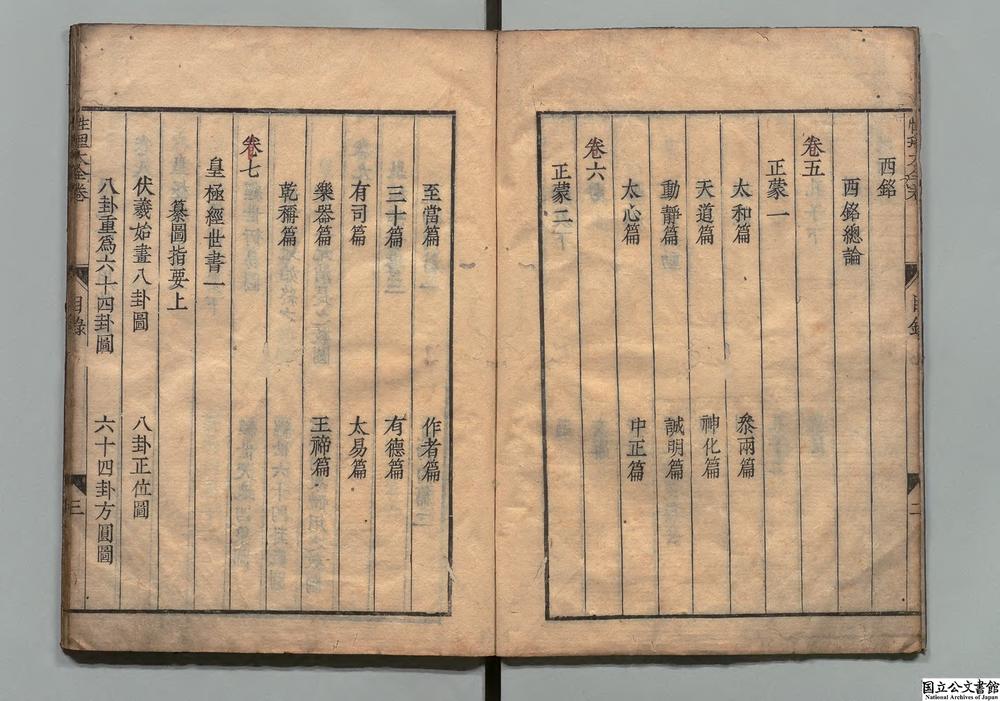 西銘
西銘總論
卷五
正蒙一
太和篇 叅兩篇
天道篇 神化篇
動靜篇 誠明篇
太心篇 中正篇
卷六
正蒙二
至當篇 作者篇
三十篇 有德篇
有司篇 太易篇
樂器篇 王禘篇
乾稱篇
卷七
皇極經世書一
纂圖指要上
伏羲始畫八卦圖 八卦正位圖
八卦重爲六十四卦圖 六十四卦方圓圖
性理大全卷 目錄 三
国立公文書館
National Archives of Japan